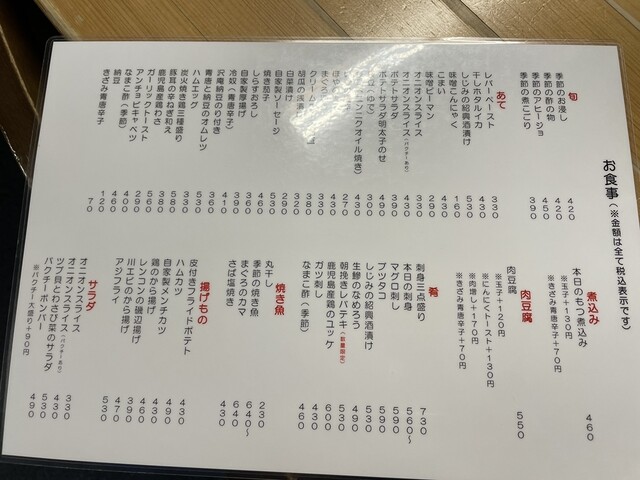 お食事(※金額は全て税込表示です)
旬
季節のお浸し 420
季節の酢の物 420
季節のアヒージョ 450
季節の煮こごり 390
あて
レバーペースト 330
干しホタルイカ 430
しじみの紹興酒漬け 530
味噌こんにゃく 160
こまい 430
味噌ピーマン 290
オニオンスライス 330
オニオンスライス(パクチーあり) 430
ポテトサラダ 390
ポテトサラダ明太子のせ 490
(ゆで) 300
ニンニクオイル焼き) 450
270
まぐろ 430
クリーム 380
胡瓜の浅漬 330
白菜漬け 320
自家製ソーセージ 290
焼き茄子 530
しらすおろし 460
自家製厚揚げ 360
冷奴(青唐辛子) 390
沢庵納豆のり付き 410
青唐と納豆のオムレツ 530
ハムエッグ 360
炭火焼き鶏三種盛り 530
豚耳の辛ねぎ和え 330
鹿児島産鶏わさ 580
ガーリックトースト
アンチョビキャベツ 290
なまこ酢(季節) 460
納豆 120
きざみ青唐辛子 70
煮込み
本日のもつ煮込み 460
※玉子+130円
※きざみ青唐辛子+70円
肉豆腐
肉豆腐 550
※玉子+120円
※にんにくトースト+130円
※肉増し+170円
※きざみ青唐辛子+70円
肴
刺身三点盛り 730
本日の刺身 560〜
マグロ刺し 590
ブツタコ 590
しじみの紹興酒漬け 530
生鯵のなめろう 490
朝挽きレバテキ(数量限定) 530
鹿児島産鶏のユッケ 600
ガツ刺し 430
なまこ酢(季節) 460
焼き魚
丸干し 230
季節の焼き魚 640〜
まぐろのカマ 640
さば塩焼き 430
揚げもの
皮付きフライドポテト 430
ハムカツ 490
自家製メンチカツ 430
鶏のから揚げ 460
レンコンの磯辺揚げ 390
川エビのから揚げ 470
アジフライ 530
サラダ
オニオンスライス 330
オニオンスライス(パクチーあり) 430
ツブ貝とわさび菜のサラダ 530
パクチーボンバー 490
※パクチー大盛り+90円